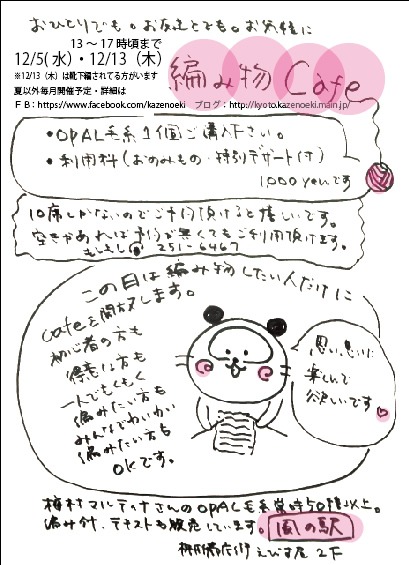 おひとりでも。お友達とでも。お気軽に
13〜17時頃まで
12/5(水)・12/13（木）
※12/13（木）は靴下編されてる方がいます
編み物Cafe
夏以外毎月開催予定・詳細は
ＦＢ：https://www.facebook.com/kazenoeki　ブログ：http://kyoto.kazenoeki.main.jp/
・OPAL毛糸1個ご購入下さい。
・利用料（おのみもの・特別デザート付）
1000yenです
10席しかないのでご予約頂けると嬉しいです。
空きがあれば予約が無くてもご利用頂けます。
もしもし 251-6467
この日は編み物したい人だけに
cafeを開放します。
初心者の方も
得意な方も
一人でもくもく
編みたい方も
みんなでわいわい
編みたい方も
OKです。
思い思いに
楽しんで
欲しいです
梅村マルティナさんのOPAL毛糸常時50種以上。
編み針、テキストも販売しています。風の駅
えびす屋2F